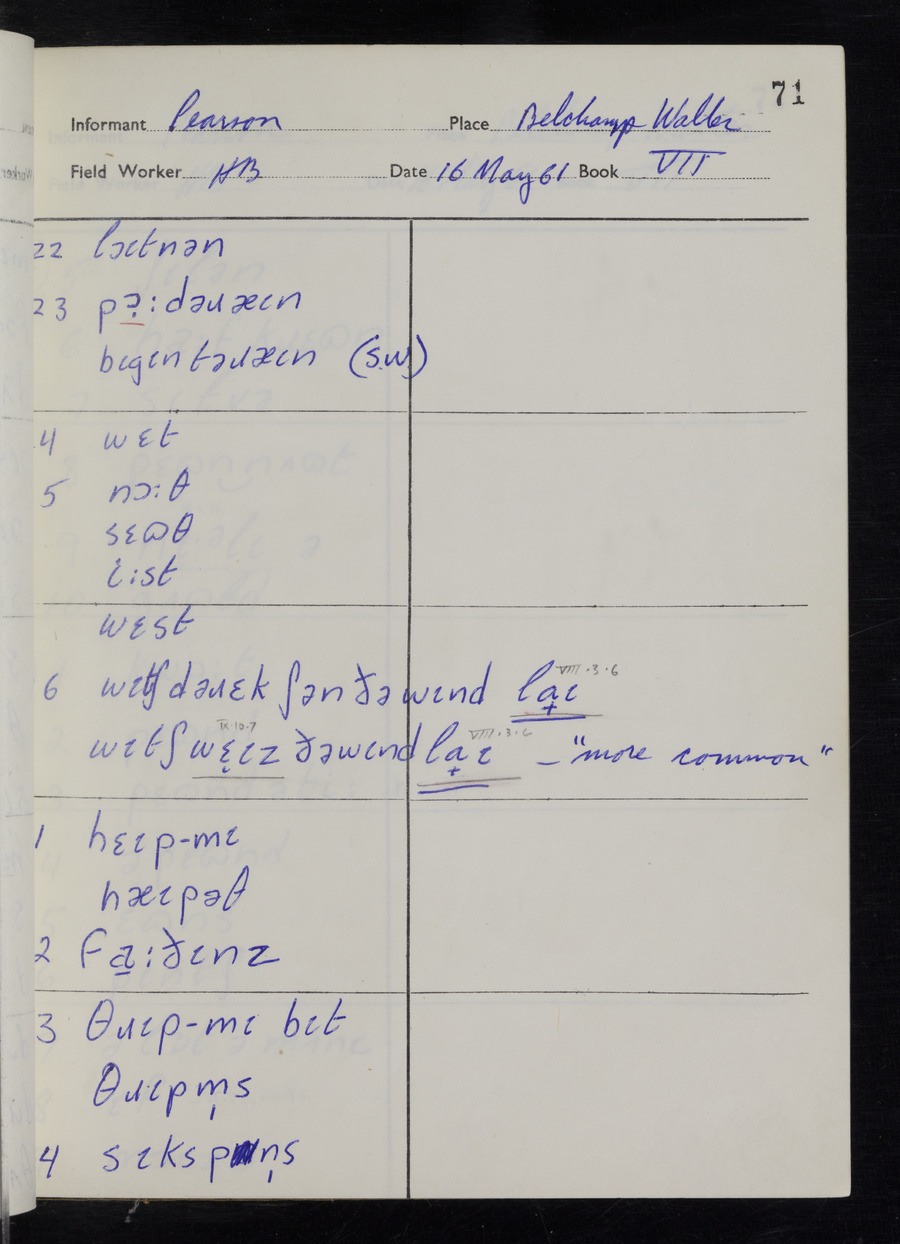 71
Informant Pearson Place Belchamp Walter
Field Worker HB Date 16 May 61 Book VII
22 lɔɪtnən
23 pɔ̣:dəɹæɪn
bɪgɪntəɹæɪn (S.W.)
4 wɛt
5 nɔ:θ
sɛɷθ
i:st
wɛst
6 wɪtʃdəɹɛkʃənðəwɪnd la̟ɪ VIII.3.6
IX.10.7 VIII.3.6
wɪtʃwɛ̣ɪz ðəwɪnd la̟ɪ — "more common"
1 hɛɪp-mɪ
hæɪpəθ
2 fa̠:ðɪnz
3 θɹɪp-mɪ bɪt
θɹɪpm̩s
4 sɪkspn̩s